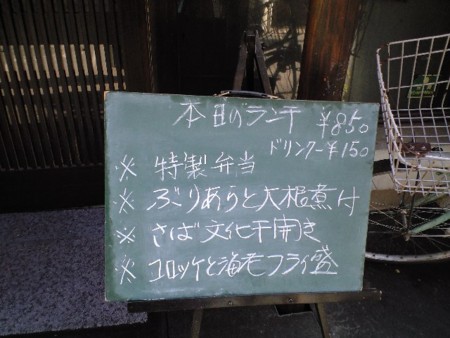 本日のランチ ¥850
ドリンクー¥150
※ 特製弁当
※ ぶりあらと大根煮付
※ さば文化干開き
※ コロッケと海老フライ盛